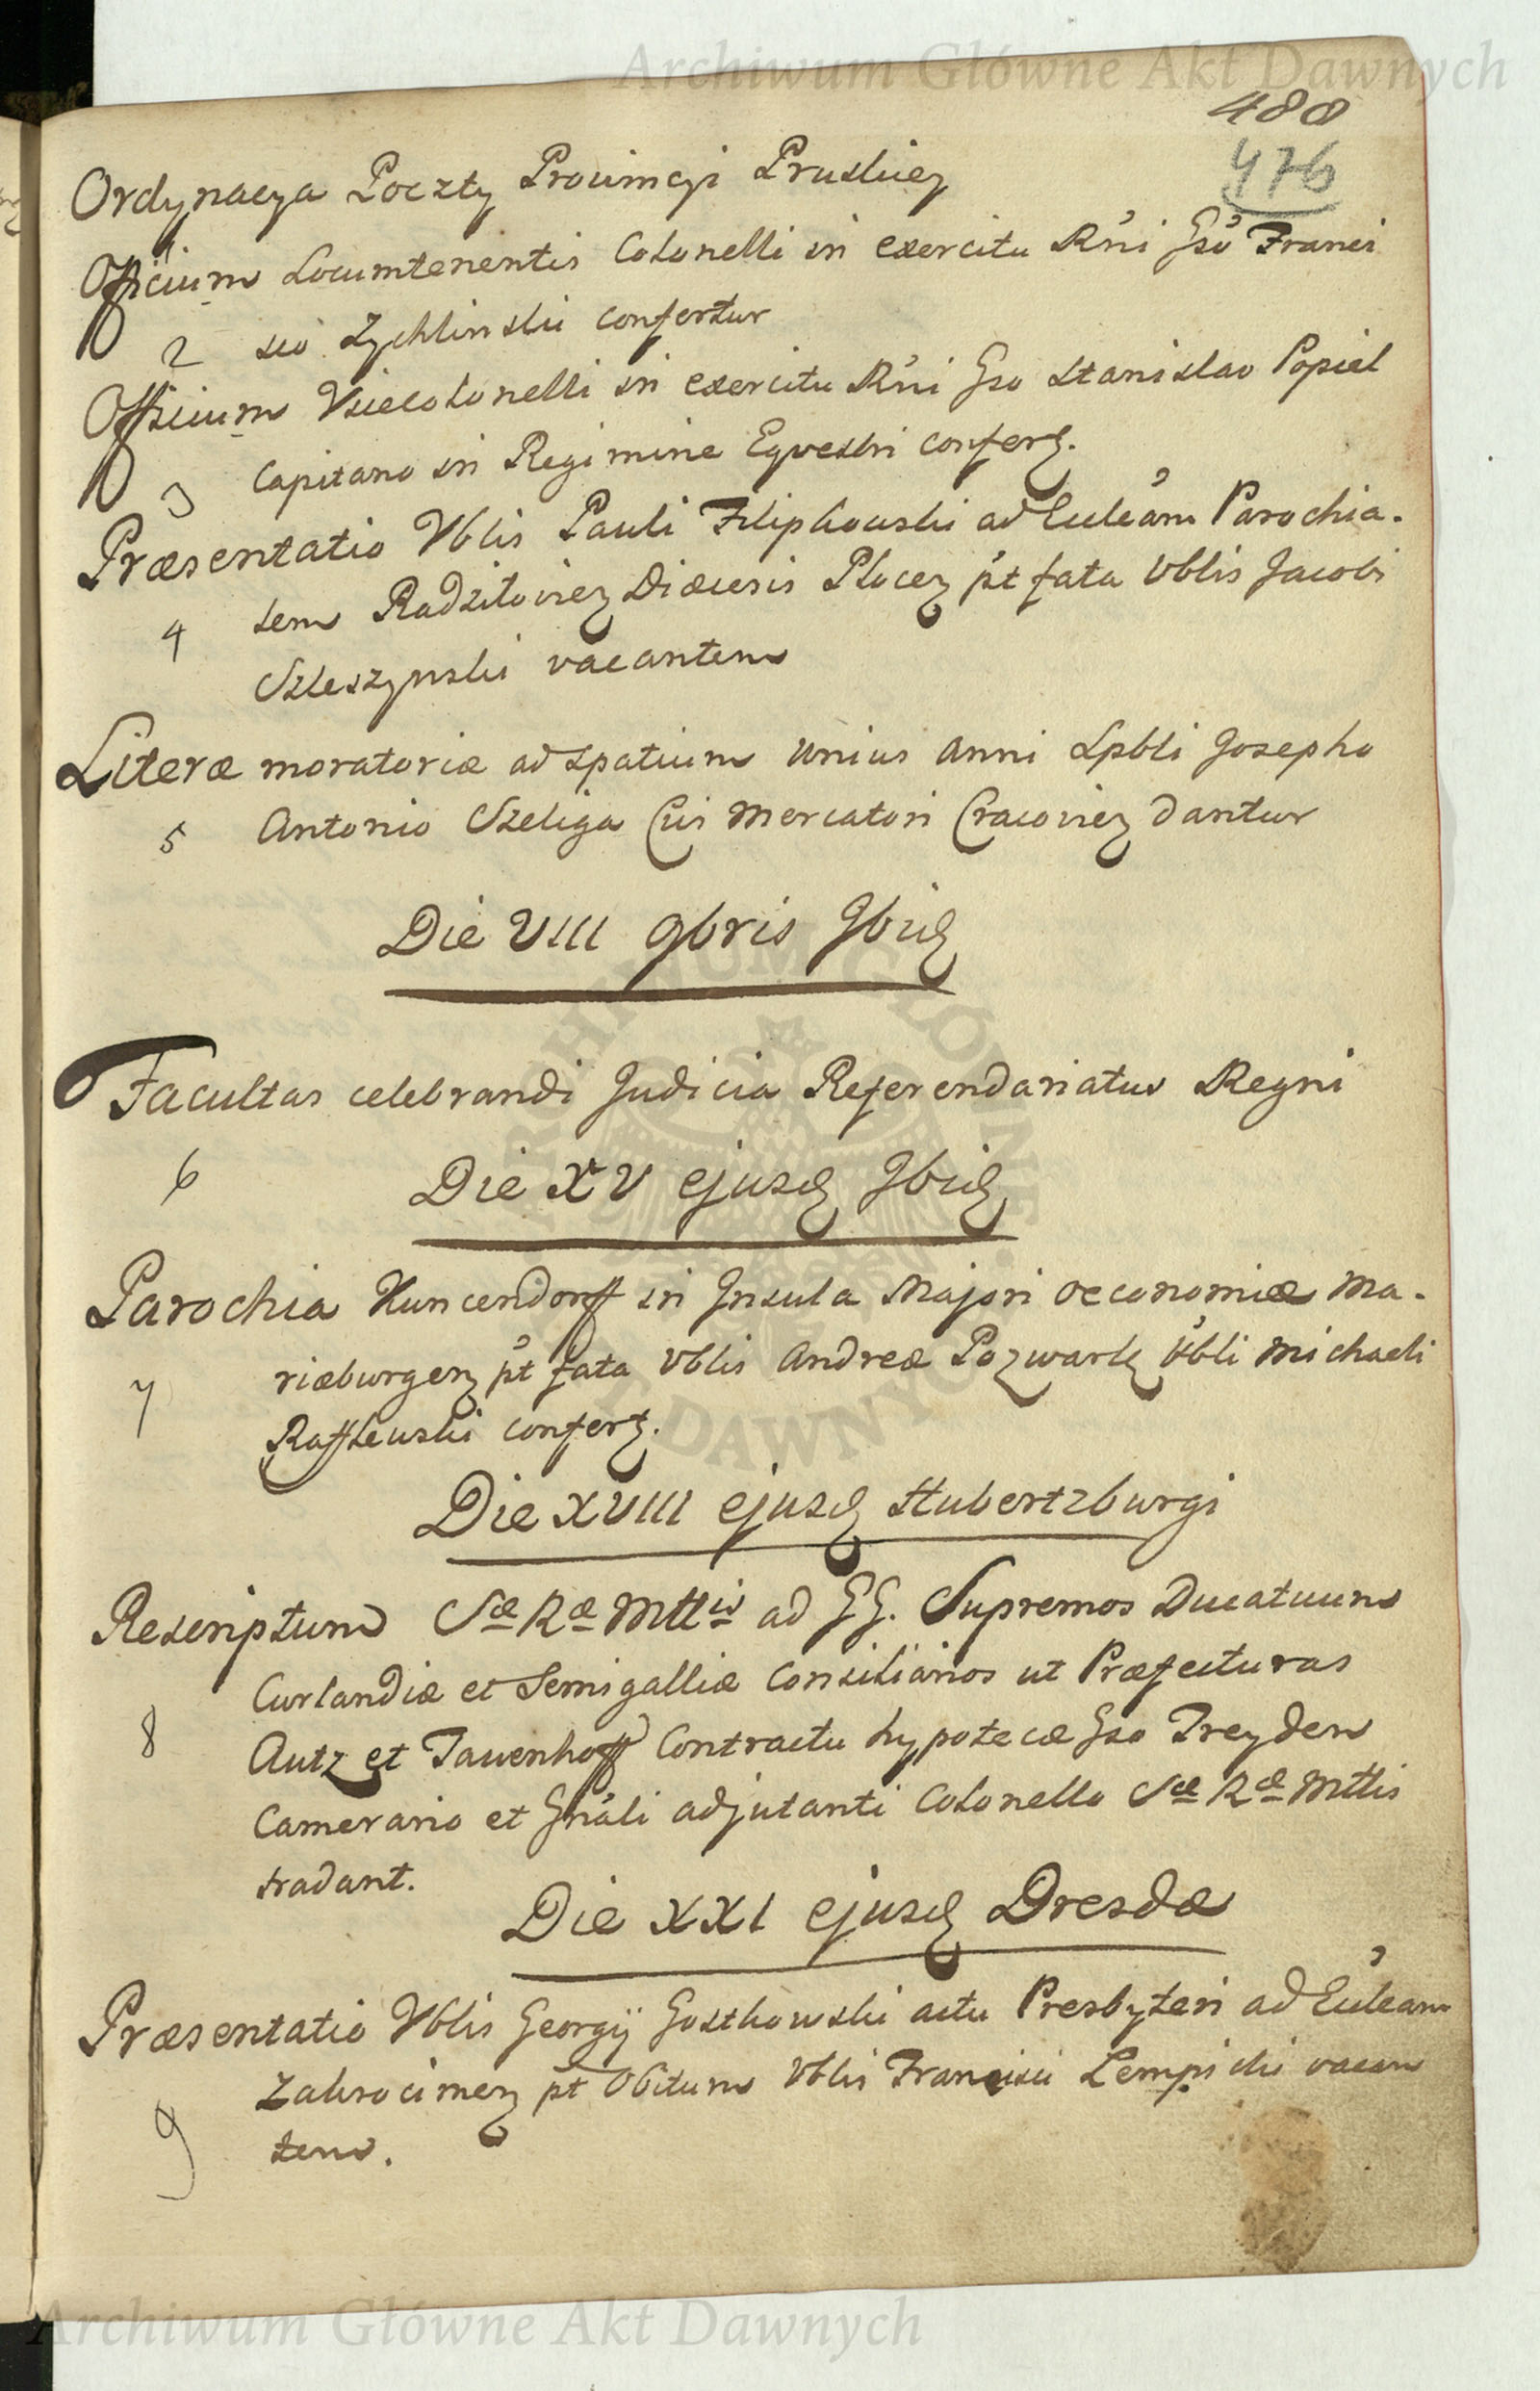 Archiwum Główne Akt Dawnych
488
476
Ordynacya Poczty Prowincyi Pruskiey
1
Officium Locumtenentis Colonelli in exercitu R'ni Gso Franci
2 sco Zychlinski confertur
Officium Vicecolonelli in exercitu R'ni Gso Stanislao Popiel
3 Capitano in Regimine Eqvestri confert.
Præsentatio Vblis Pauli Filipkowski ad Eccleam Parochia-
4 lem Radziłoviens Diæcesis Plocen pt fata Vblis Jacobi
Szleszynski vacantem
Literæ moratoriæ ad spatium unius anni Spbli Josepho
5 Antonio Szeliga Civi Mercatori Cracovien dantur
Die VIII 9bris Ibid
Facultas celebrandi Judicia Referendariatus Regni
6
Die XV ejusd Ibid
Parochia Kuncendorff in Insula Majori oeconomiæ Ma-
7 riæburgen pt fata Vblis Andreæ Pozwark Vbli Michaeli
Raffkowski confert.
Die XVIII ejusd Hubertzburgi
Rescriptum Sæ Ræ Mttis ad GG. Supremos Ducatuum
Curlandiæ et Semigalliæ Consiliarios ut Præfecturas
8 Autz et Tauenhoff Contractu hypotecæ Gso Treyden
Camerario et Gnali adjutanti Colonello Sæ Ræ Mttis
tradant.
Die XXI ejusd Dresdæ
Præsentatio Vblis Georgij Gostkowski actu Presbyteri ad Eccleam
9 Zakrocimen pt Obitum Vblis Francisci Lempicki vacan
tem.
ARCHIWUM GŁÓWNE AKT DAWNYCH
Archiwum Główne Akt Dawnych